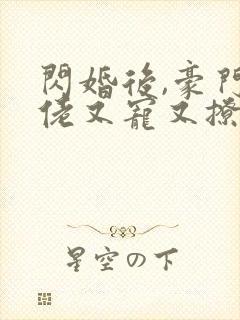 閃婚後,豪門
佬又寵又撩
星空の下